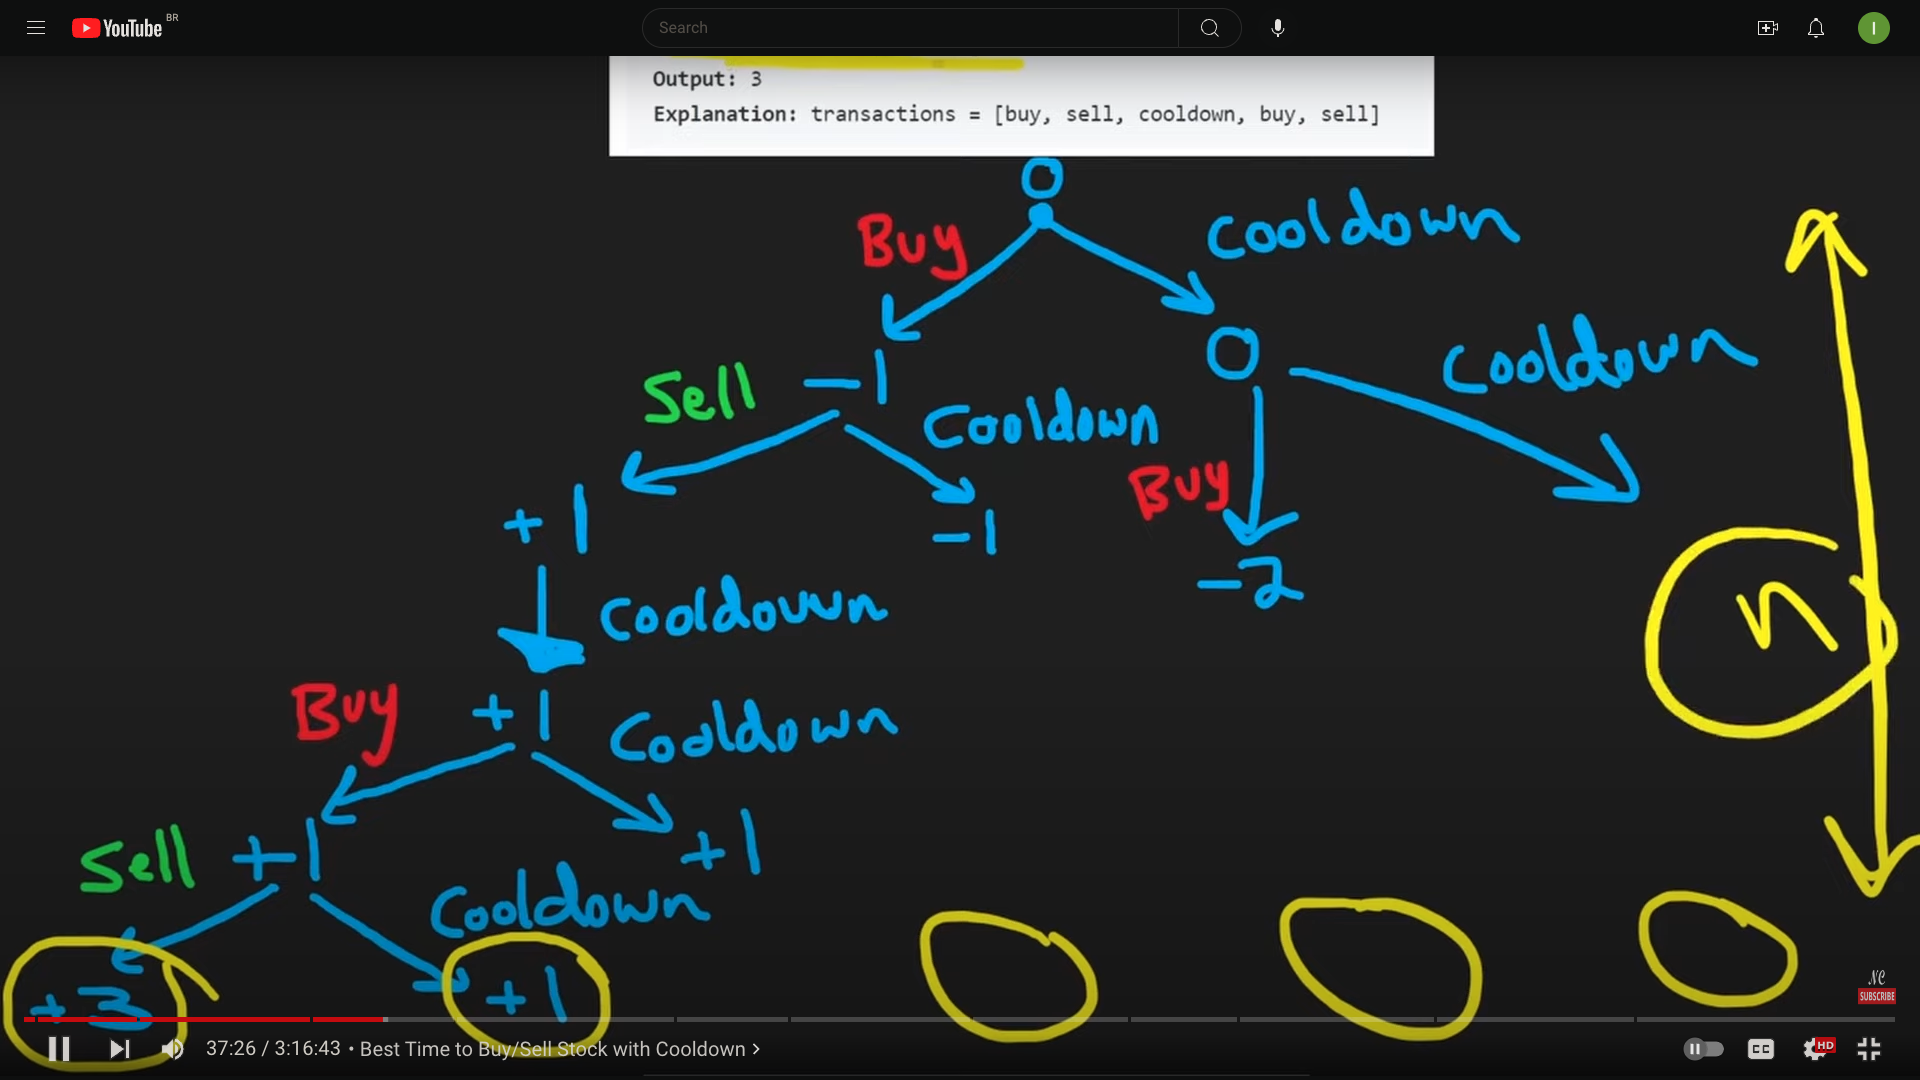 YouTube BR
Search
I
Output: 3
Explanation: transactions = [buy, sell, cooldown, buy, sell]
0
Buy
Cooldown
0
Cooldown
Sell
-1
Cooldown
Buy
+1
-1
-2
n
Cooldown
Buy
+1
Cooldown
Sell
+1
+1
Cooldown
+3
+1
NC
SUBSCRIBE
37:26 / 3:16:43 • Best Time to Buy/Sell Stock with Cooldown
CC
HD